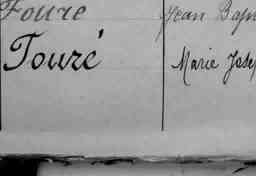 Fouré Jean Bap
Touzé Marie Jose